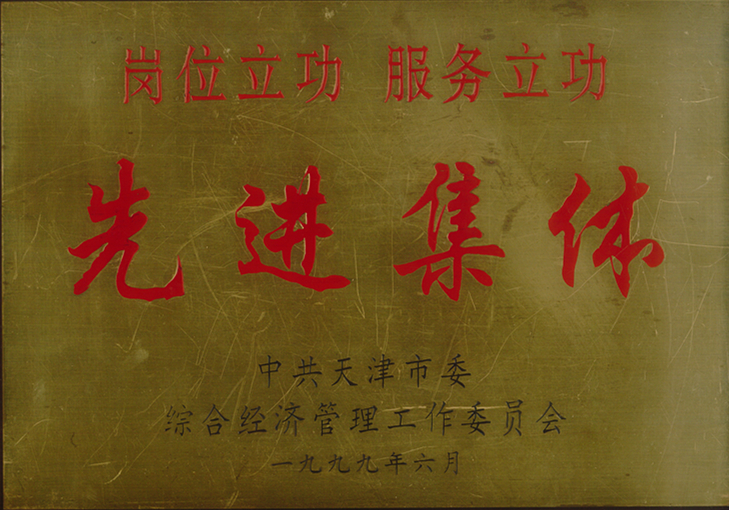 岗位立功 服务立功
先进集体
中共天津市委
综合经济管理工作委员会
一九九九年六月